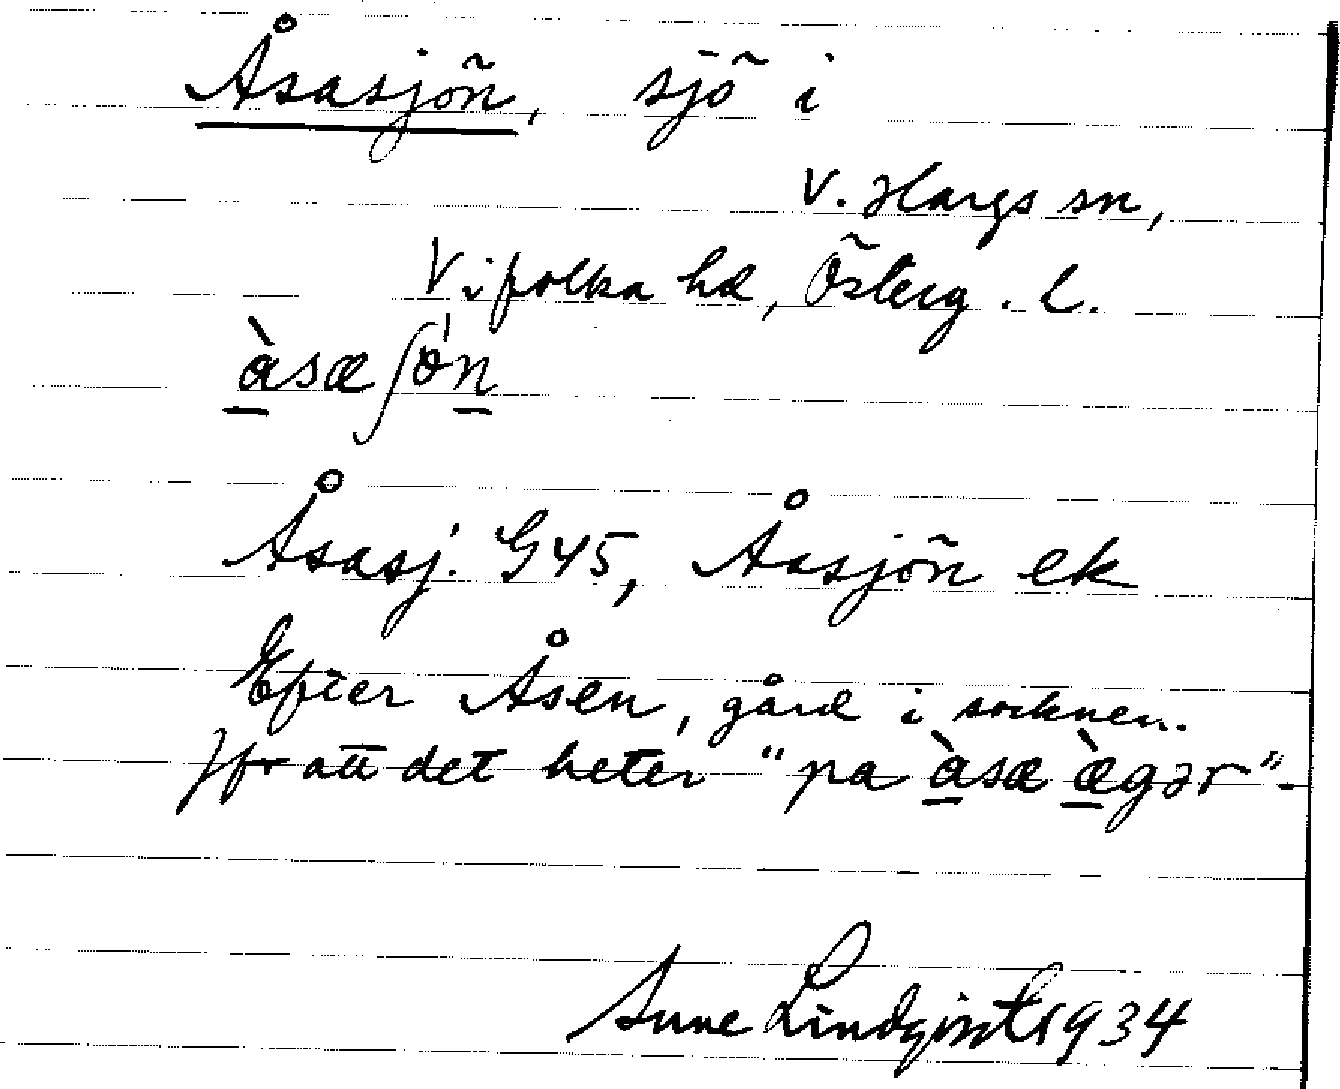 Åsasjön, sjö i
V. Hargs sn,
Vifolka hd, Österg. l.
àsæʃö́n
Åsasj. G45, Åsjön ek
Efter Åsen, gård i socknen.
Jfr att det heter "pa àsæ æ̀gər".
Sune Lindqvist 1934